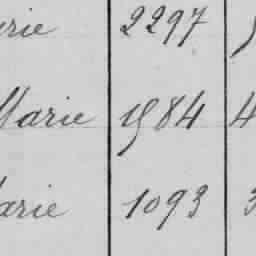 rie 2297
Marie 1984 4
arie 1093 3